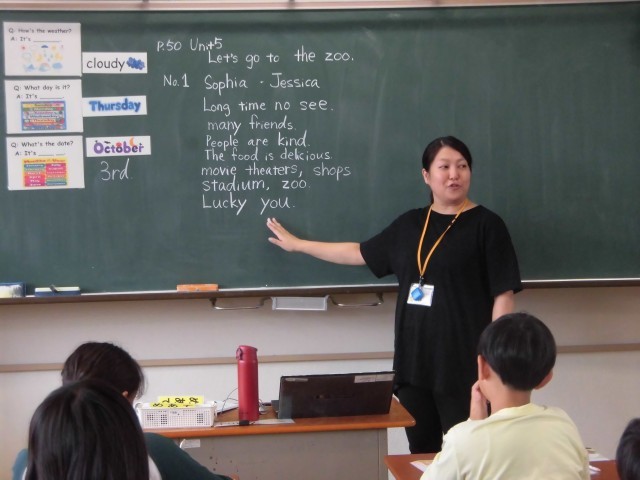 Q: How's the weather?
A: It's
cloudy
Q: What day is it?
A: It's
Thursday
Q: What's the date?
A: It's
October
3rd
P.50 Unit5
Let's go to the zoo.
No.1 Sophia · Jessica
Long time no see.
many friends.
People are kind.
The food is delicious.
movie theaters, shops
stadium, zoo.
Lucky you.